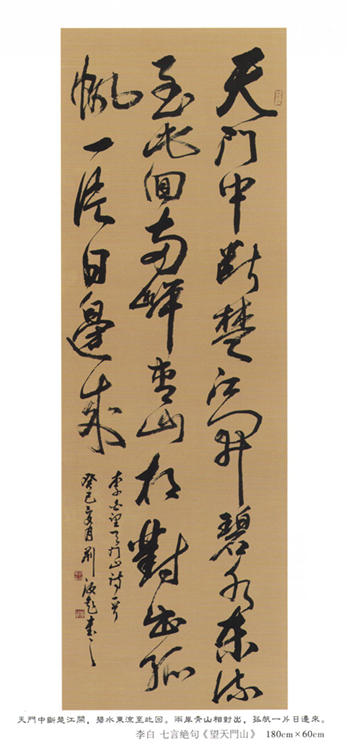 天門中斷楚江開碧水東流
至此回兩岸青山相對出孤
帆一片日邊來
李白望天門山詩一首
癸巳夏月劉書之
天門中斷楚江開，碧水東流至此回。兩岸青山相對出，孤帆一片日邊來。
李白 七言絕句《望天門山》 180cm×60cm